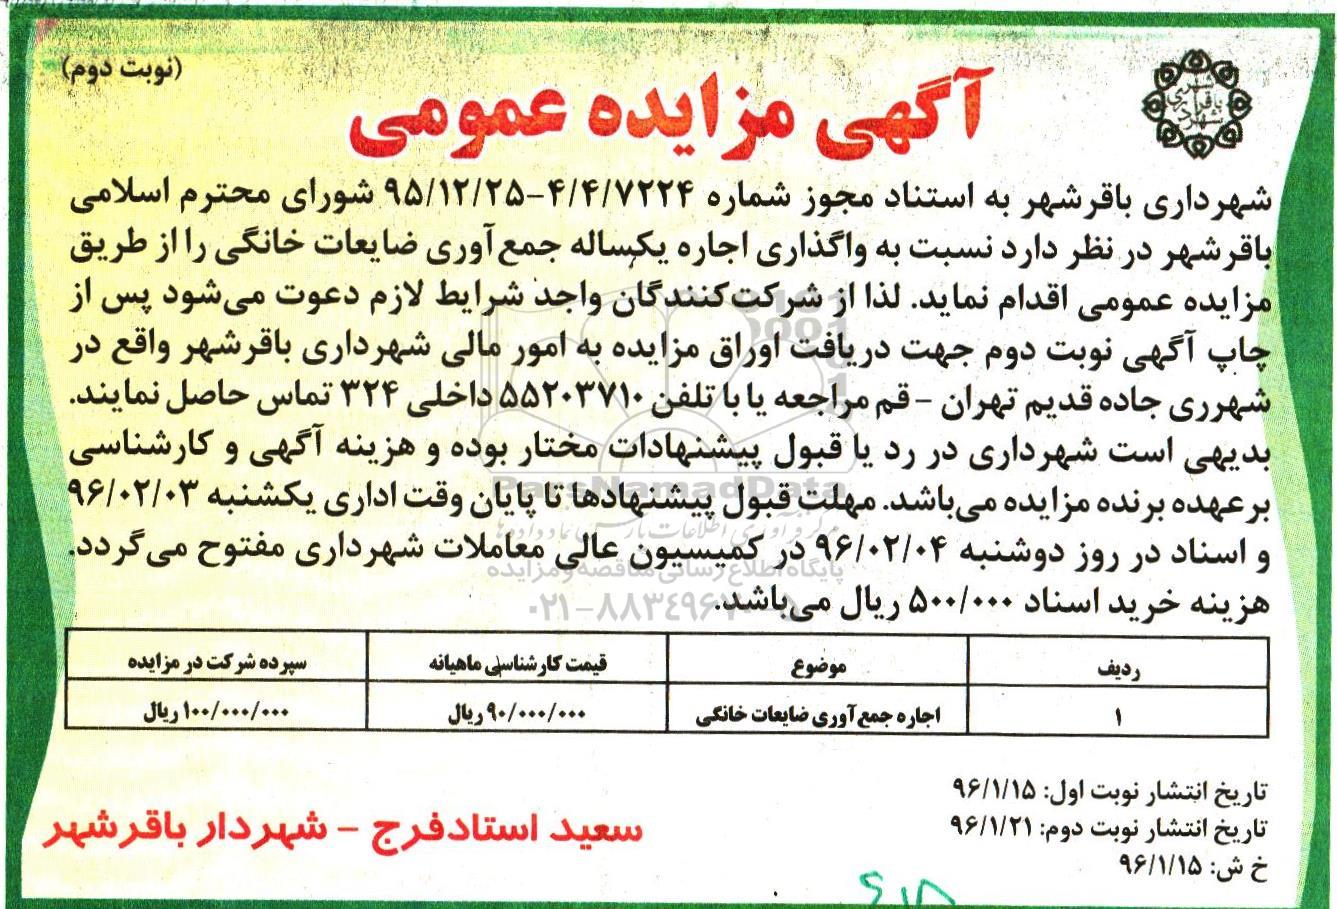 (نوبت دوم)
شهرداری باقرشهر
آگهی مزایده عمومی
شهرداری باقرشهر به استناد مجوز شماره ۴/۴/۷۲۲۴-۹۵/۱۲/۲۵ شورای محترم اسلامی
باقرشهر در نظر دارد نسبت به واگذاری اجاره یکساله جمع‌آوری ضایعات خانگی را از طریق
مزایده عمومی اقدام نماید. لذا از شرکت‌کنندگان واجد شرایط لازم دعوت می‌شود پس از
چاپ آگهی نوبت دوم جهت دریافت اوراق مزایده به امور مالی شهرداری باقرشهر واقع در
شهرری جاده قدیم تهران - قم مراجعه یا با تلفن ۵۵۲۰۳۷۱۰ داخلی ۳۲۴ تماس حاصل نمایند.
بدیهی است شهرداری در رد یا قبول پیشنهادات مختار بوده و هزینه آگهی و کارشناسی
برعهده برنده مزایده می‌باشد. مهلت قبول پیشنهادها تا پایان وقت اداری یکشنبه ۹۶/۰۲/۰۳
و اسناد در روز دوشنبه ۹۶/۰۲/۰۴ در کمیسیون عالی معاملات شهرداری مفتوح می‌گردد.
هزینه خرید اسناد ۵۰۰/۰۰۰ ریال می‌باشد.
ParsNamadData
پایگاه اطلاع رسانی مناقصه و مزایده
ردیف موضوع قیمت کارشناسی ماهیانه سپرده شرکت در مزایده
۱ اجاره جمع‌آوری ضایعات خانگی ۹۰/۰۰۰/۰۰۰ ریال ۱۰۰/۰۰۰/۰۰۰ ریال
تاریخ انتشار نوبت اول: ۹۶/۱/۱۵
تاریخ انتشار نوبت دوم: ۹۶/۱/۲۱
خ ش: ۹۶/۱/۱۵
سعید استادفرج - شهردار باقرشهر